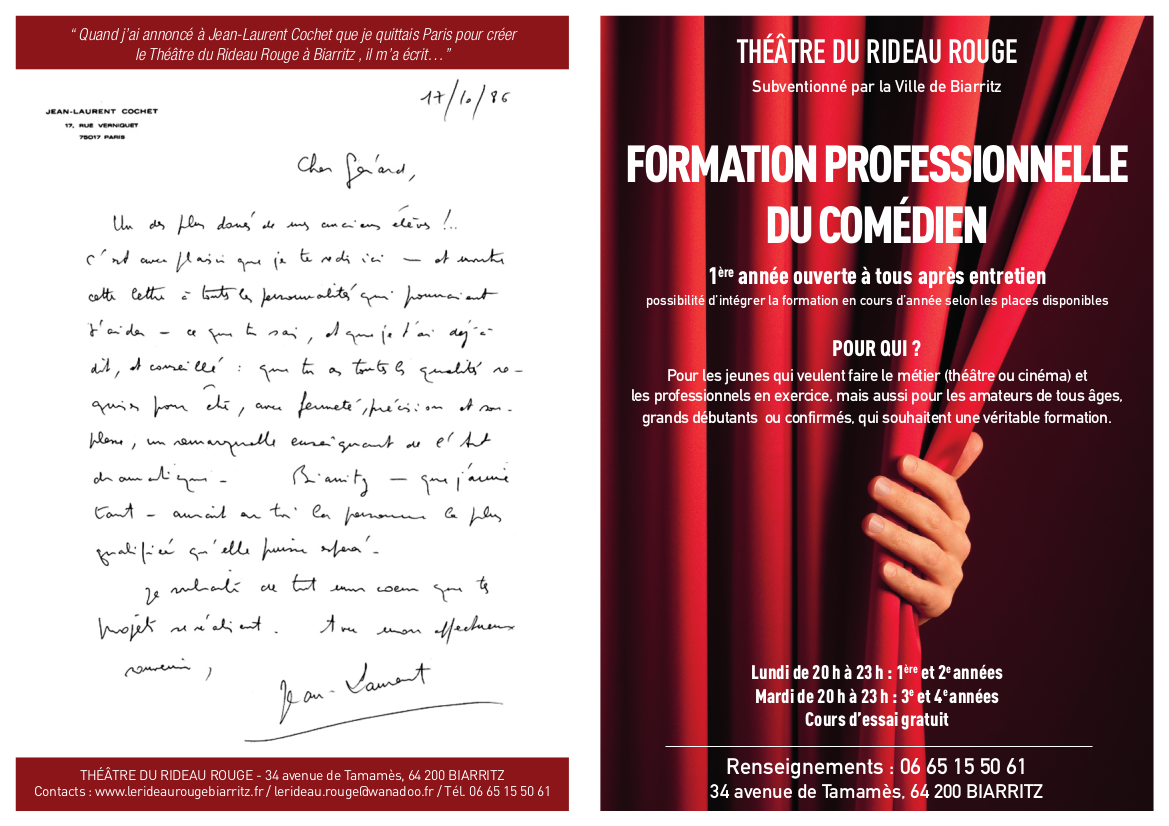 “ Quand j’ai annoncé à Jean-Laurent Cochet que je quittais Paris pour créer
le Théâtre du Rideau Rouge à Biarritz , il m’a écrit… ”
17/10/86
JEAN-LAURENT COCHET
17, RUE VERNIQUET
75017 PARIS
Cher Gérard,
Un des plus doués de mes anciens élèves !..
c'est avec plaisir que je te redis ici — et montre
cette lettre à toutes les personnalités qui pourraient
t'aider — ce que tu sais, et que je t'ai déjà
dit, et conseillé : que tu as toutes les qualités re-
quises pour être, avec fermeté, précision et sou-
plesse, un remarquable enseignant de l'Art
dramatique - Biarritz — que j'aime
tant - aurait en toi la personne la plus
qualifiée qu'elle puisse espérer -
Je souhaite de tout mon coeur que tes
projets se réalisent. A toi mon affectueux
souvenir,
Jean-Laurent
THÉÂTRE DU RIDEAU ROUGE - 34 avenue de Tamamès, 64 200 BIARRITZ
Contacts : www.lerideaurougebiarritz.fr / lerideau.rouge@wanadoo.fr / Tél. 06 65 15 50 61
THÉÂTRE DU RIDEAU ROUGE
Subventionné par la Ville de Biarritz
FORMATION PROFESSIONNELLE
DU COMÉDIEN
1ère année ouverte à tous après entretien
possibilité d’intégrer la formation en cours d’année selon les places disponibles
POUR QUI ?
Pour les jeunes qui veulent faire le métier (théâtre ou cinéma) et
les professionnels en exercice, mais aussi pour les amateurs de tous âges,
grands débutants ou confirmés, qui souhaitent une véritable formation.
Lundi de 20 h à 23 h : 1ère et 2e années
Mardi de 20 h à 23 h : 3e et 4e années
Cours d’essai gratuit
Renseignements : 06 65 15 50 61
34 avenue de Tamamès, 64 200 BIARRITZ